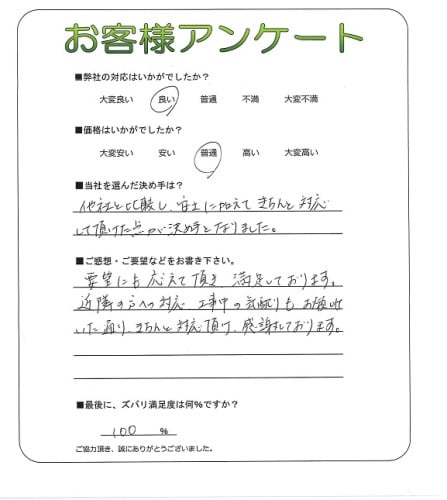 お客様アンケート
■弊社の対応はいかがでしたか？
大変良い 良い 普通 不満 大変不満
■価格はいかがでしたか？
大変安い 安い 普通 高い 大変高い
■当社を選んだ決め手は？
他社と比較し、安土に加えてきちんと対応
して頂けた点が決め手となりました。
■ご感想・ご要望などをお書き下さい。
要望にも応えて頂き、満足しております。
近隣の方への対応、工事中の気配りもお願いして
いた通り、きちんと対応頂け、感謝しております。
■最後に、ズバリ満足度は何％ですか？
100 %
ご協力頂き、誠にありがとうございました。